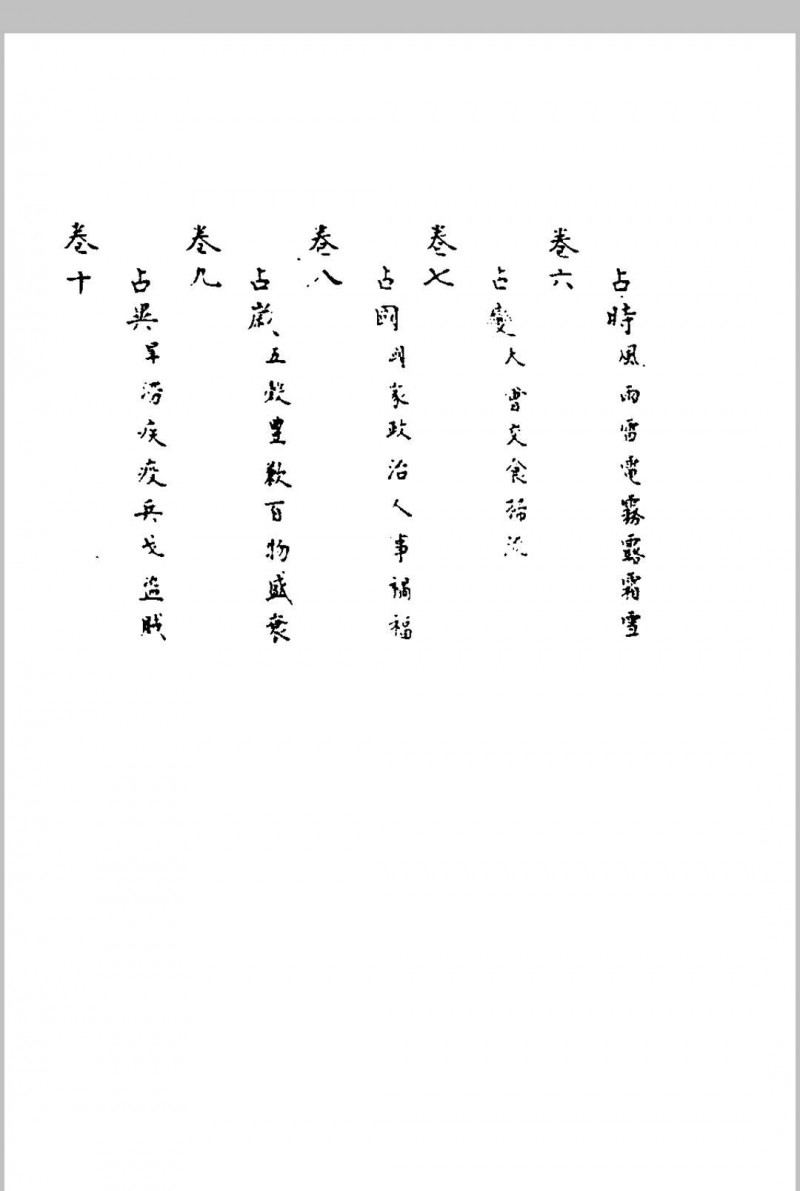 占時風雨雷電霧露霜雪
卷六
占變交食
卷七
占國國家政治人事禍福
卷八
占歲五穀豊歉百物盛衰
卷九
占異旱澇疾疫兵戈盜賊
卷十